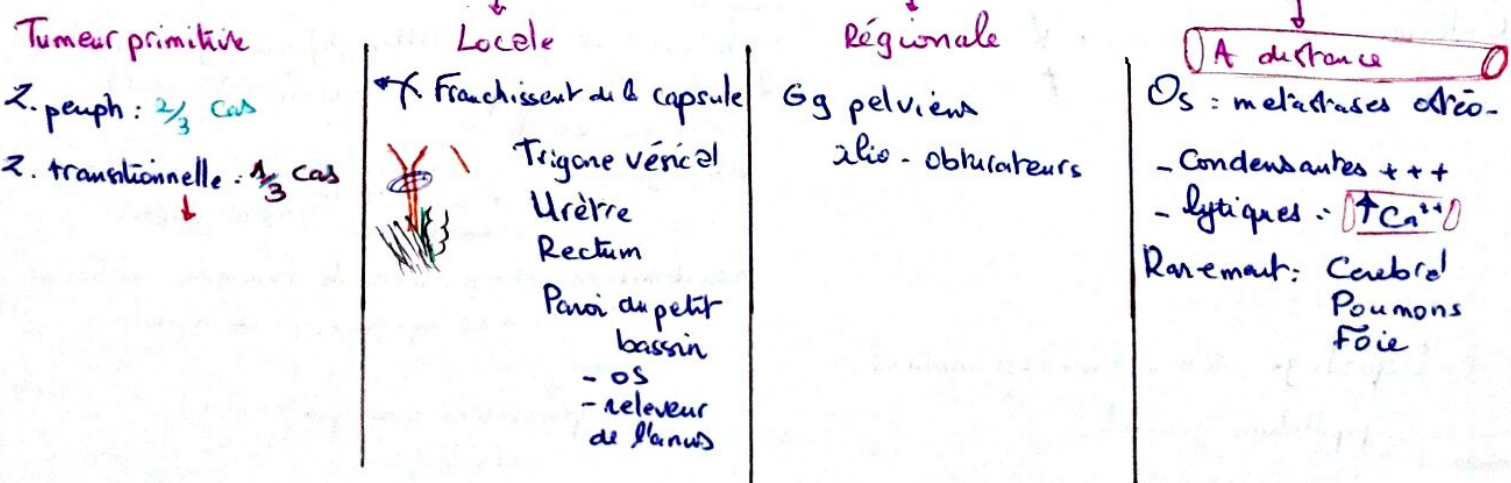 Tumeur primitive
Z. periph : 2/3 cas
Z. transitionnelle : 1/3 cas
Locale
Franchissent de la capsule
Trigone vésical
Urètre
Rectum
Paroi du petit
bassin
- os
- releveur
de l'anus
Régionale
Gg pelviens
ilio - obturateurs
A distance
Os : metastases ostéo-
- Condensantes + + +
- lytiques : ↑Ca⁺⁺
Rarement : Cerebral
Poumons
Foie